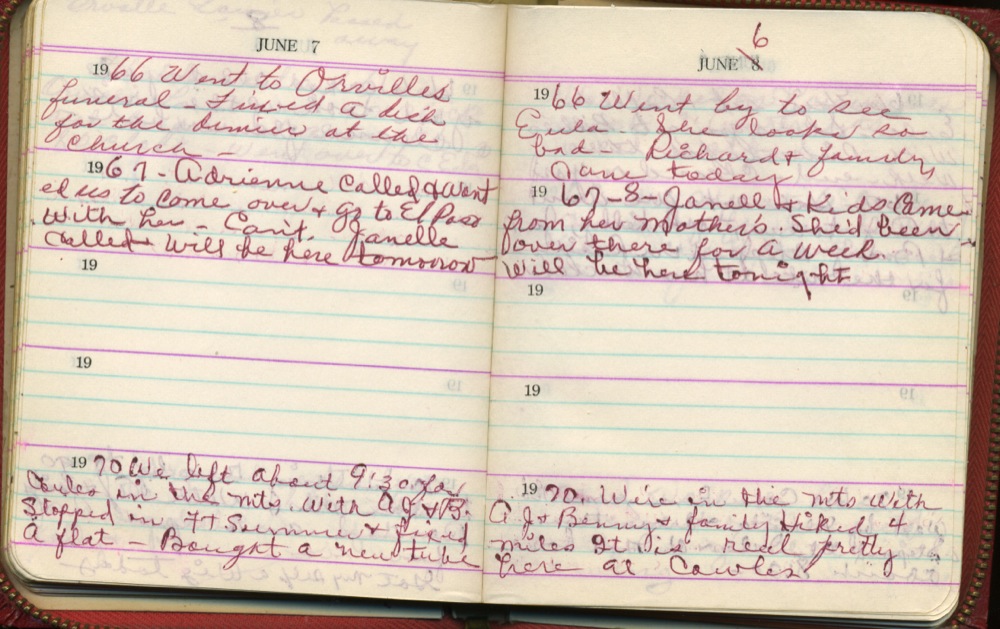 JUNE 7
1966 Went to Orvilles
funeral - Fixed a dish
for the dinner at the
church -
1967 - Adrienne called & want
ed us to come over & go to El Paso
with her - Can't. Janelle
called & will be here tomorrow
19
19
1970 We left about 9:30 for
Cowles in the mts. with A J & B.
Stopped in Ft Sumner & fixed
a flat - Bought a new tube
6
JUNE 8
1966 Went by to see
Eula. She looks so
bad - Richard & family
came today
1967 - 8 - Janell & Kids came
from her mother's. She'd been
over there for a week.
Will be here tonight
19
19
1970. We're in the mts with
A J & Benny & family Hiked 4
miles It is real pretty
here at Cowles